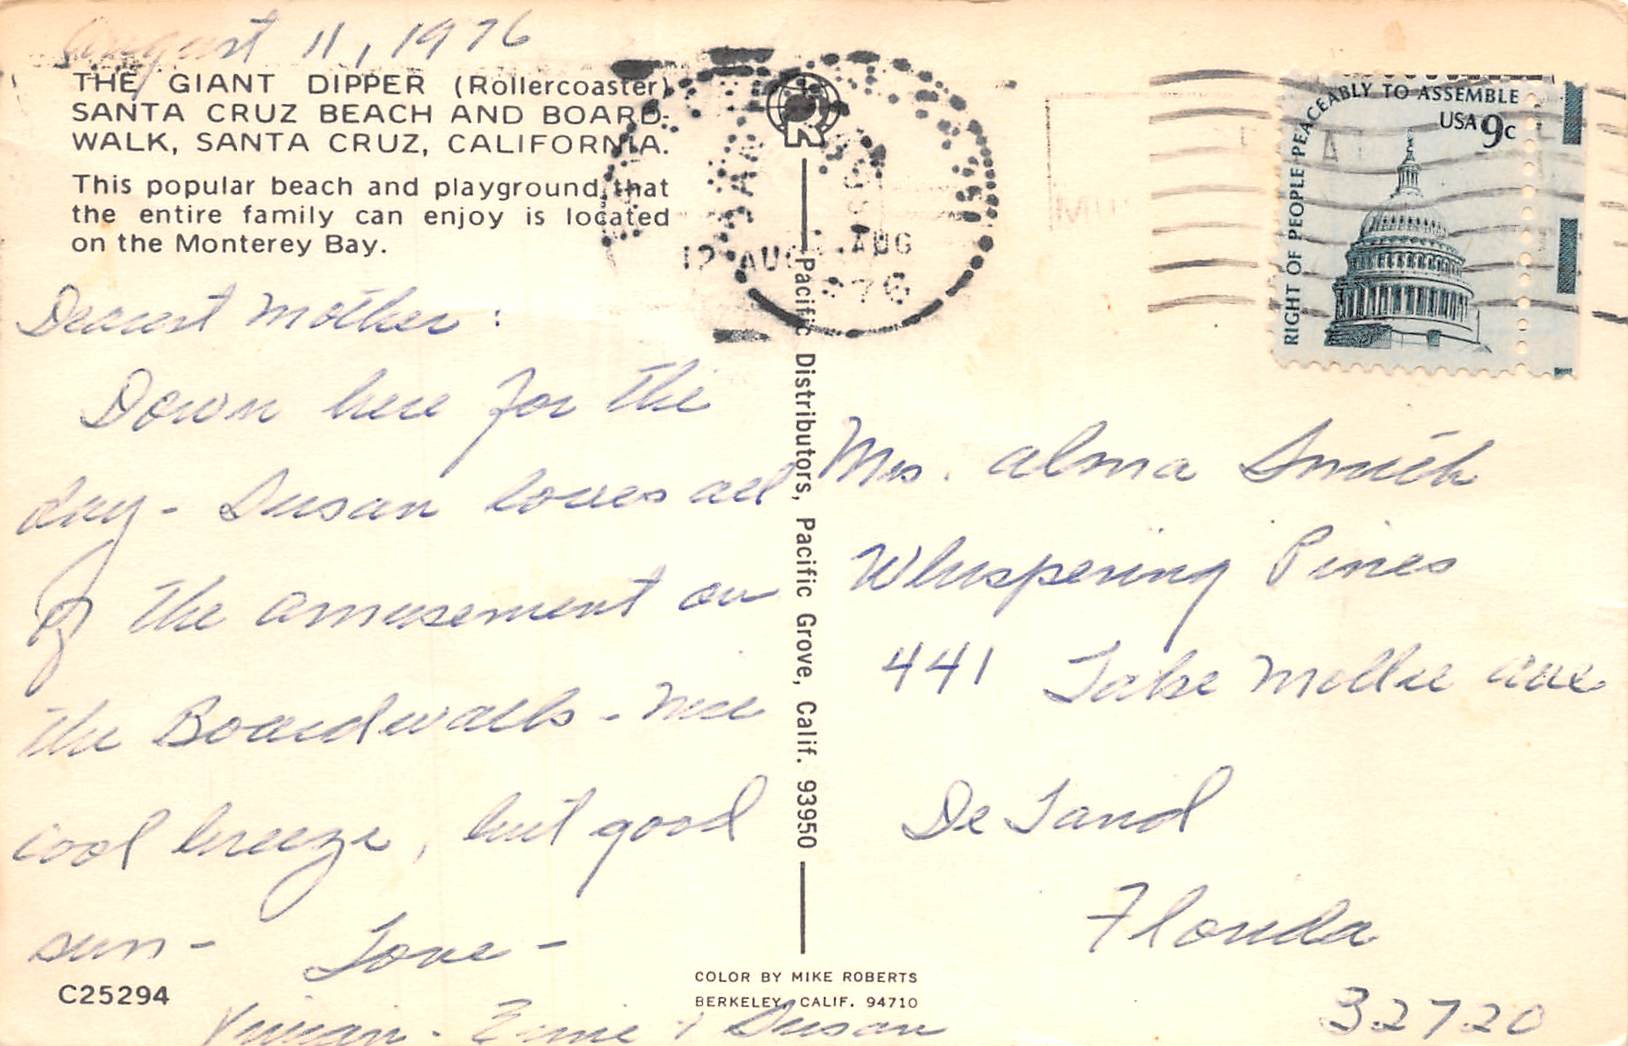 August 11, 1976
THE GIANT DIPPER (Rollercoaster)
SANTA CRUZ BEACH AND BOARD-
WALK, SANTA CRUZ, CALIFORNIA.
This popular beach and playground that
the entire family can enjoy is located
on the Monterey Bay.
Dearest Mother:
Down here for the
day - Susan loves all
of the amusement on
the Boardwalk - Nice
cool breeze, but good
sun - Love -
Vivian - Ernie + Susan
C25294
R
Pacific Distributors, Pacific Grove, Calif. 93950
COLOR BY MIKE ROBERTS
BERKELEY, CALIF. 94710
12 AUG
AUG
1976
RIGHT OF PEOPLE PEACEABLY TO ASSEMBLE
USA 9c
Mrs. Alma Smith
Whispering Pines
441 Lake Mollie Ave
De Land
Florida
32720